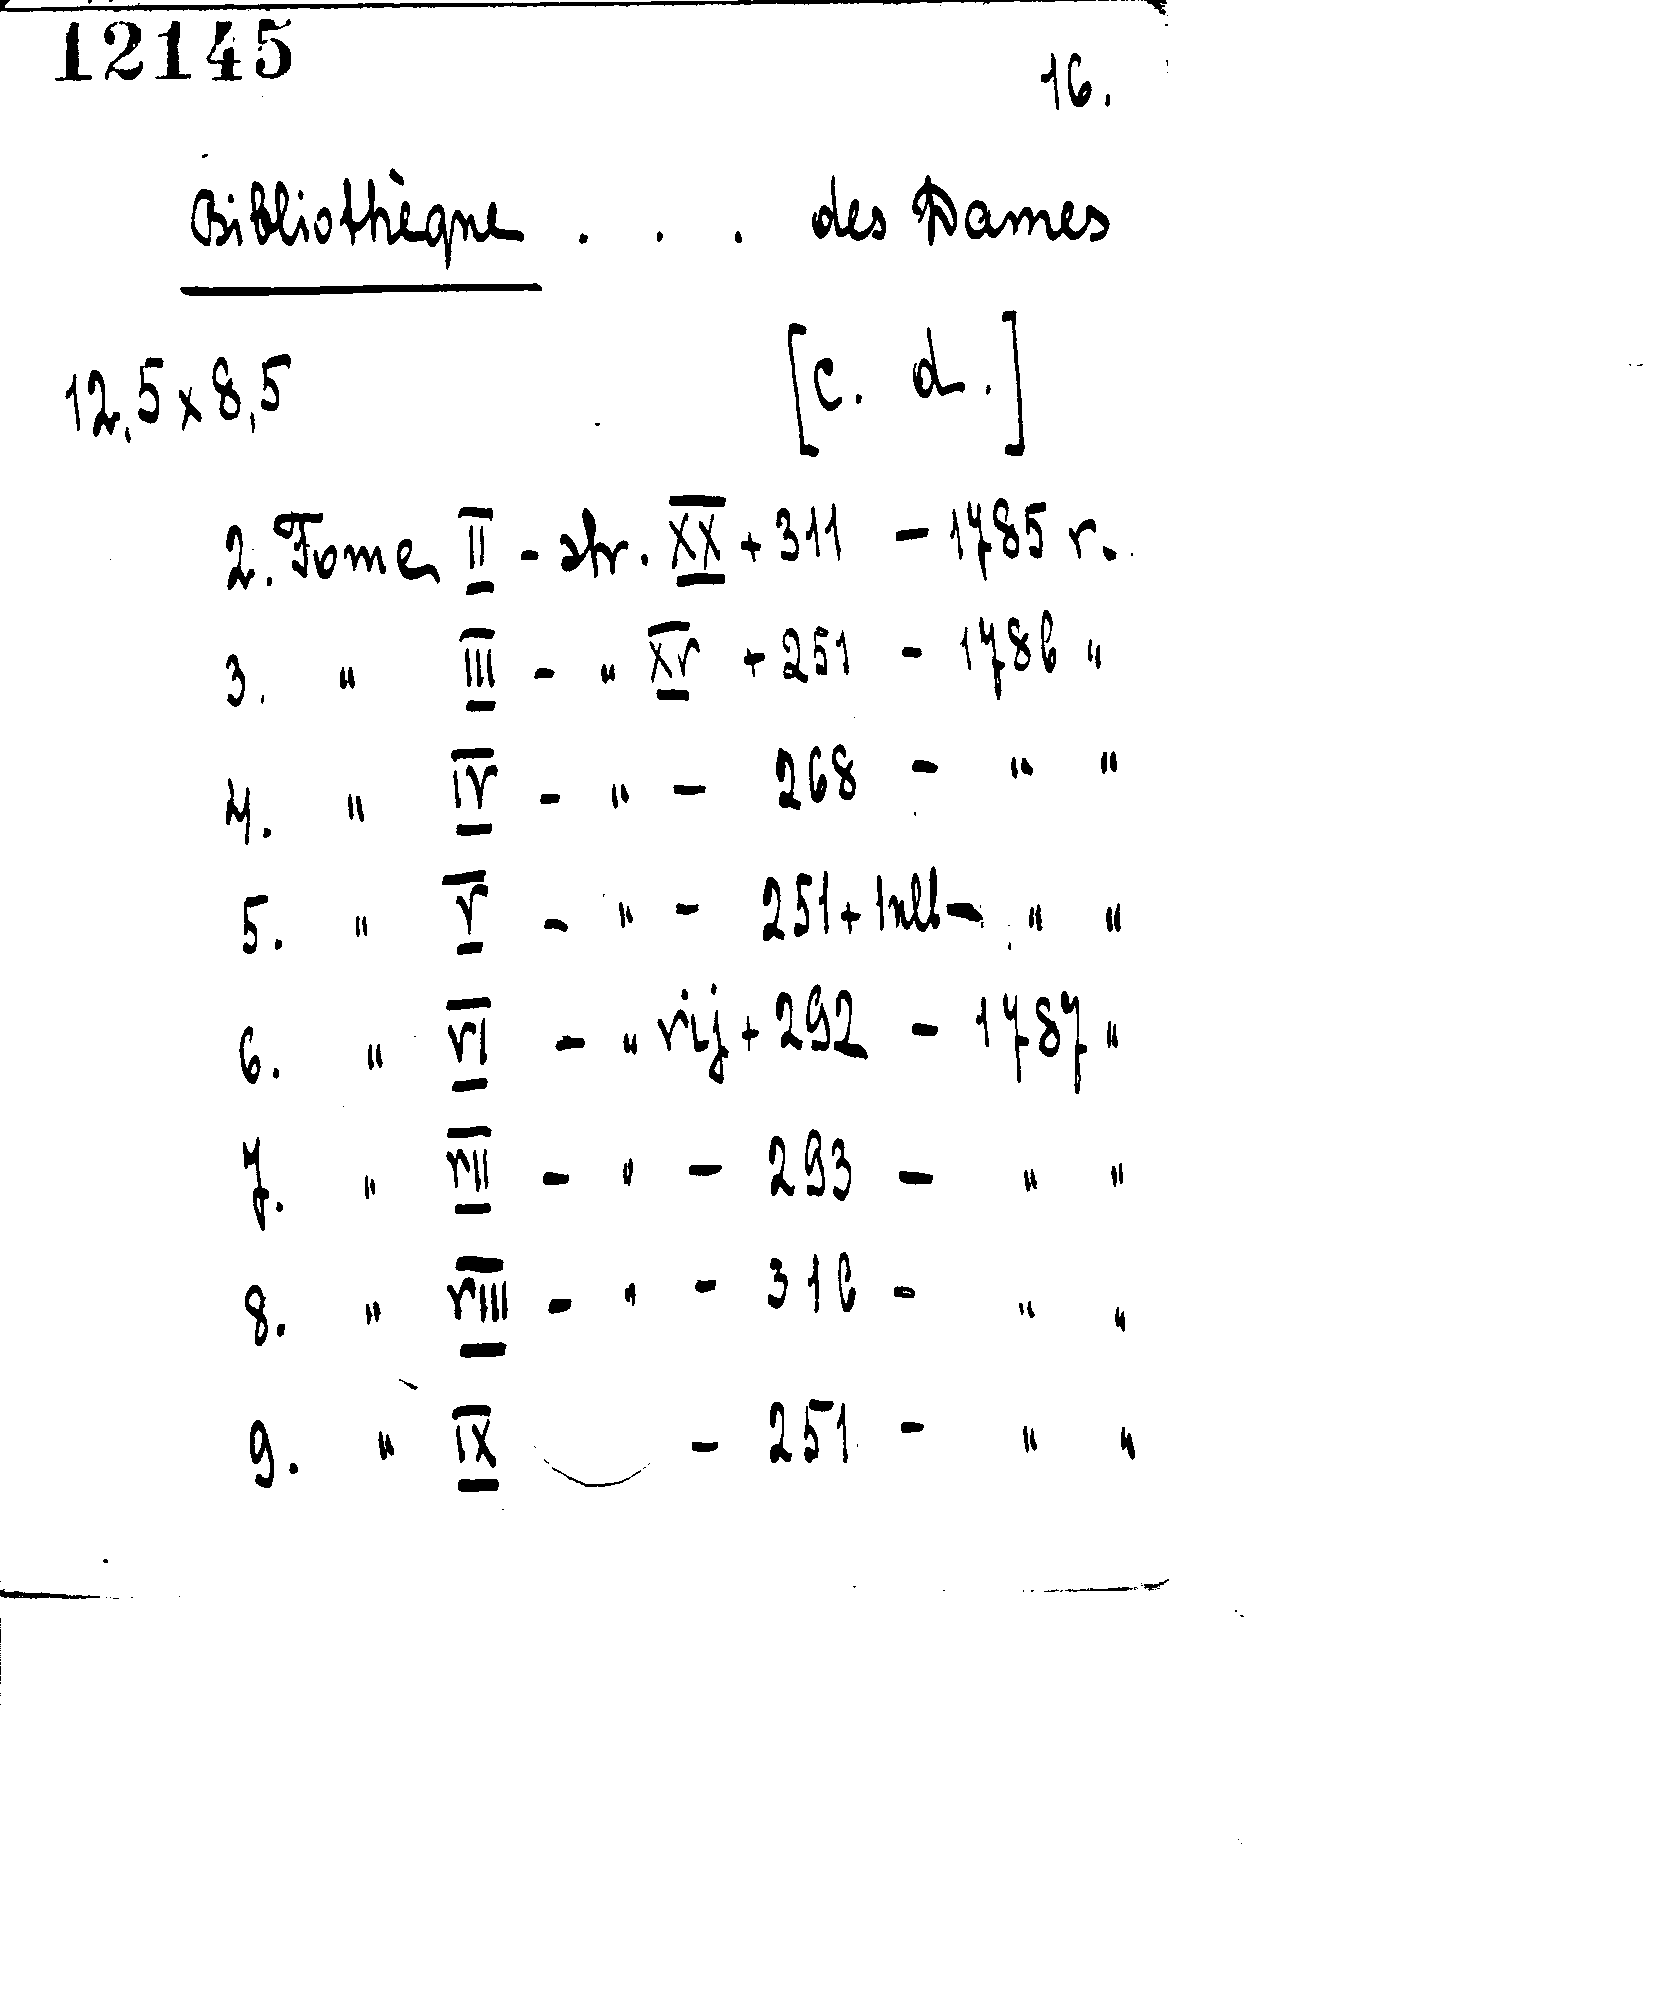 12145
16.
Bibliothèque . . . des Dames
12,5 x 8,5 [c. d.]
2. Tome II - str. XX + 311 - 1785 r.
3. " III - " XV + 251 - 1786 "
4. " IV - " - 268 - " "
5. " V - " - 251 + 1 nlb - " "
6. " VI - " vij + 292 - 1787 "
7. " VII - " - 293 - " "
8. " VIII - " - 316 - " "
9. " IX - 251 - " "